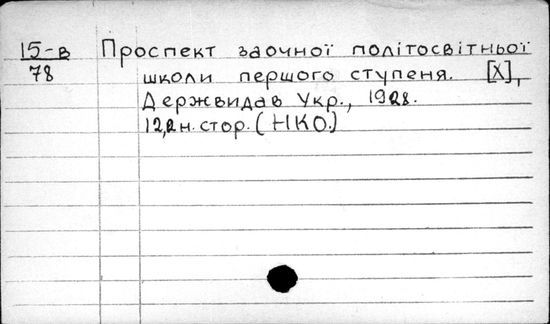 15-в Проспект заочної політосвітньої
78 школи першого ступеня. [Х],
Держвидав Укр., 1928.
12,2н.стор. (НКО.)